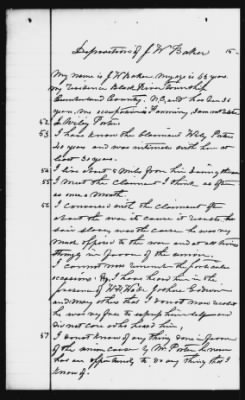 Deposition of J W Baker 15
My name is J W Baker my age is 65 years
my residence Black River Township
Cumberland County, N.C. and has been 31
years, my occupation is Farming, I am not related
52 to Wiley Porter
53 I have know the Claimant Wiley Porter
20 years and was intimate with him at
least 20 years.
54 I live about 2 miles from him during the war
55 I meet the Claimant I think as often
as once a month
56 I conversed with the claimant often
about the war its cause it results he
said slavery was the cause he was very
much opposed to the war and at all times
strongly in favor of the union.
I can not now enumerate the particular
occasions. I have heard him in the
presence of
and many others that I do not now recollect
he was very free to express himself and
did not care who heard him,
57 I do not know of any thing done in favor
of the union cause by Mr. Porter he never
has an oppertunity to do any thing that I
know of.